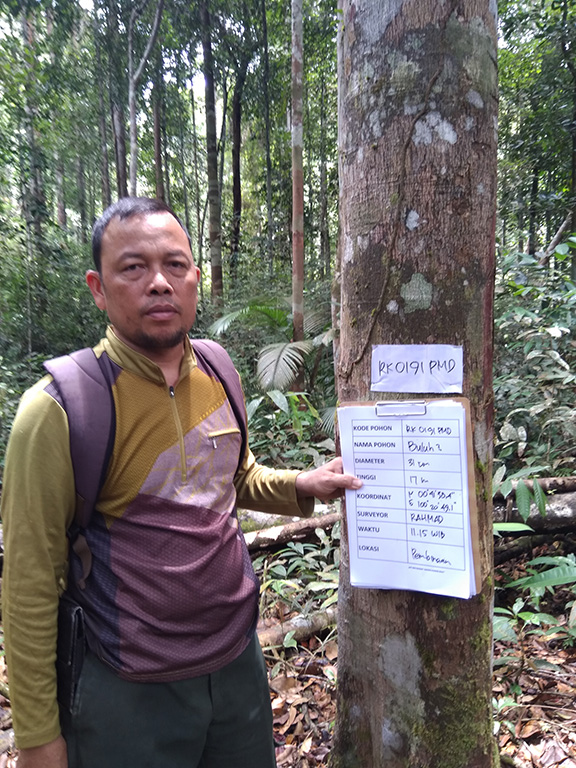 RK 0191 PMD
KODE POHON RK 0191 PMD
NAMA POHON Buluh 2
DIAMETER 31 cm
TINGGI 17 M
KOORDINAT
SURVEYOR RAHMAD
WAKTU 11.15 WIB
LOKASI